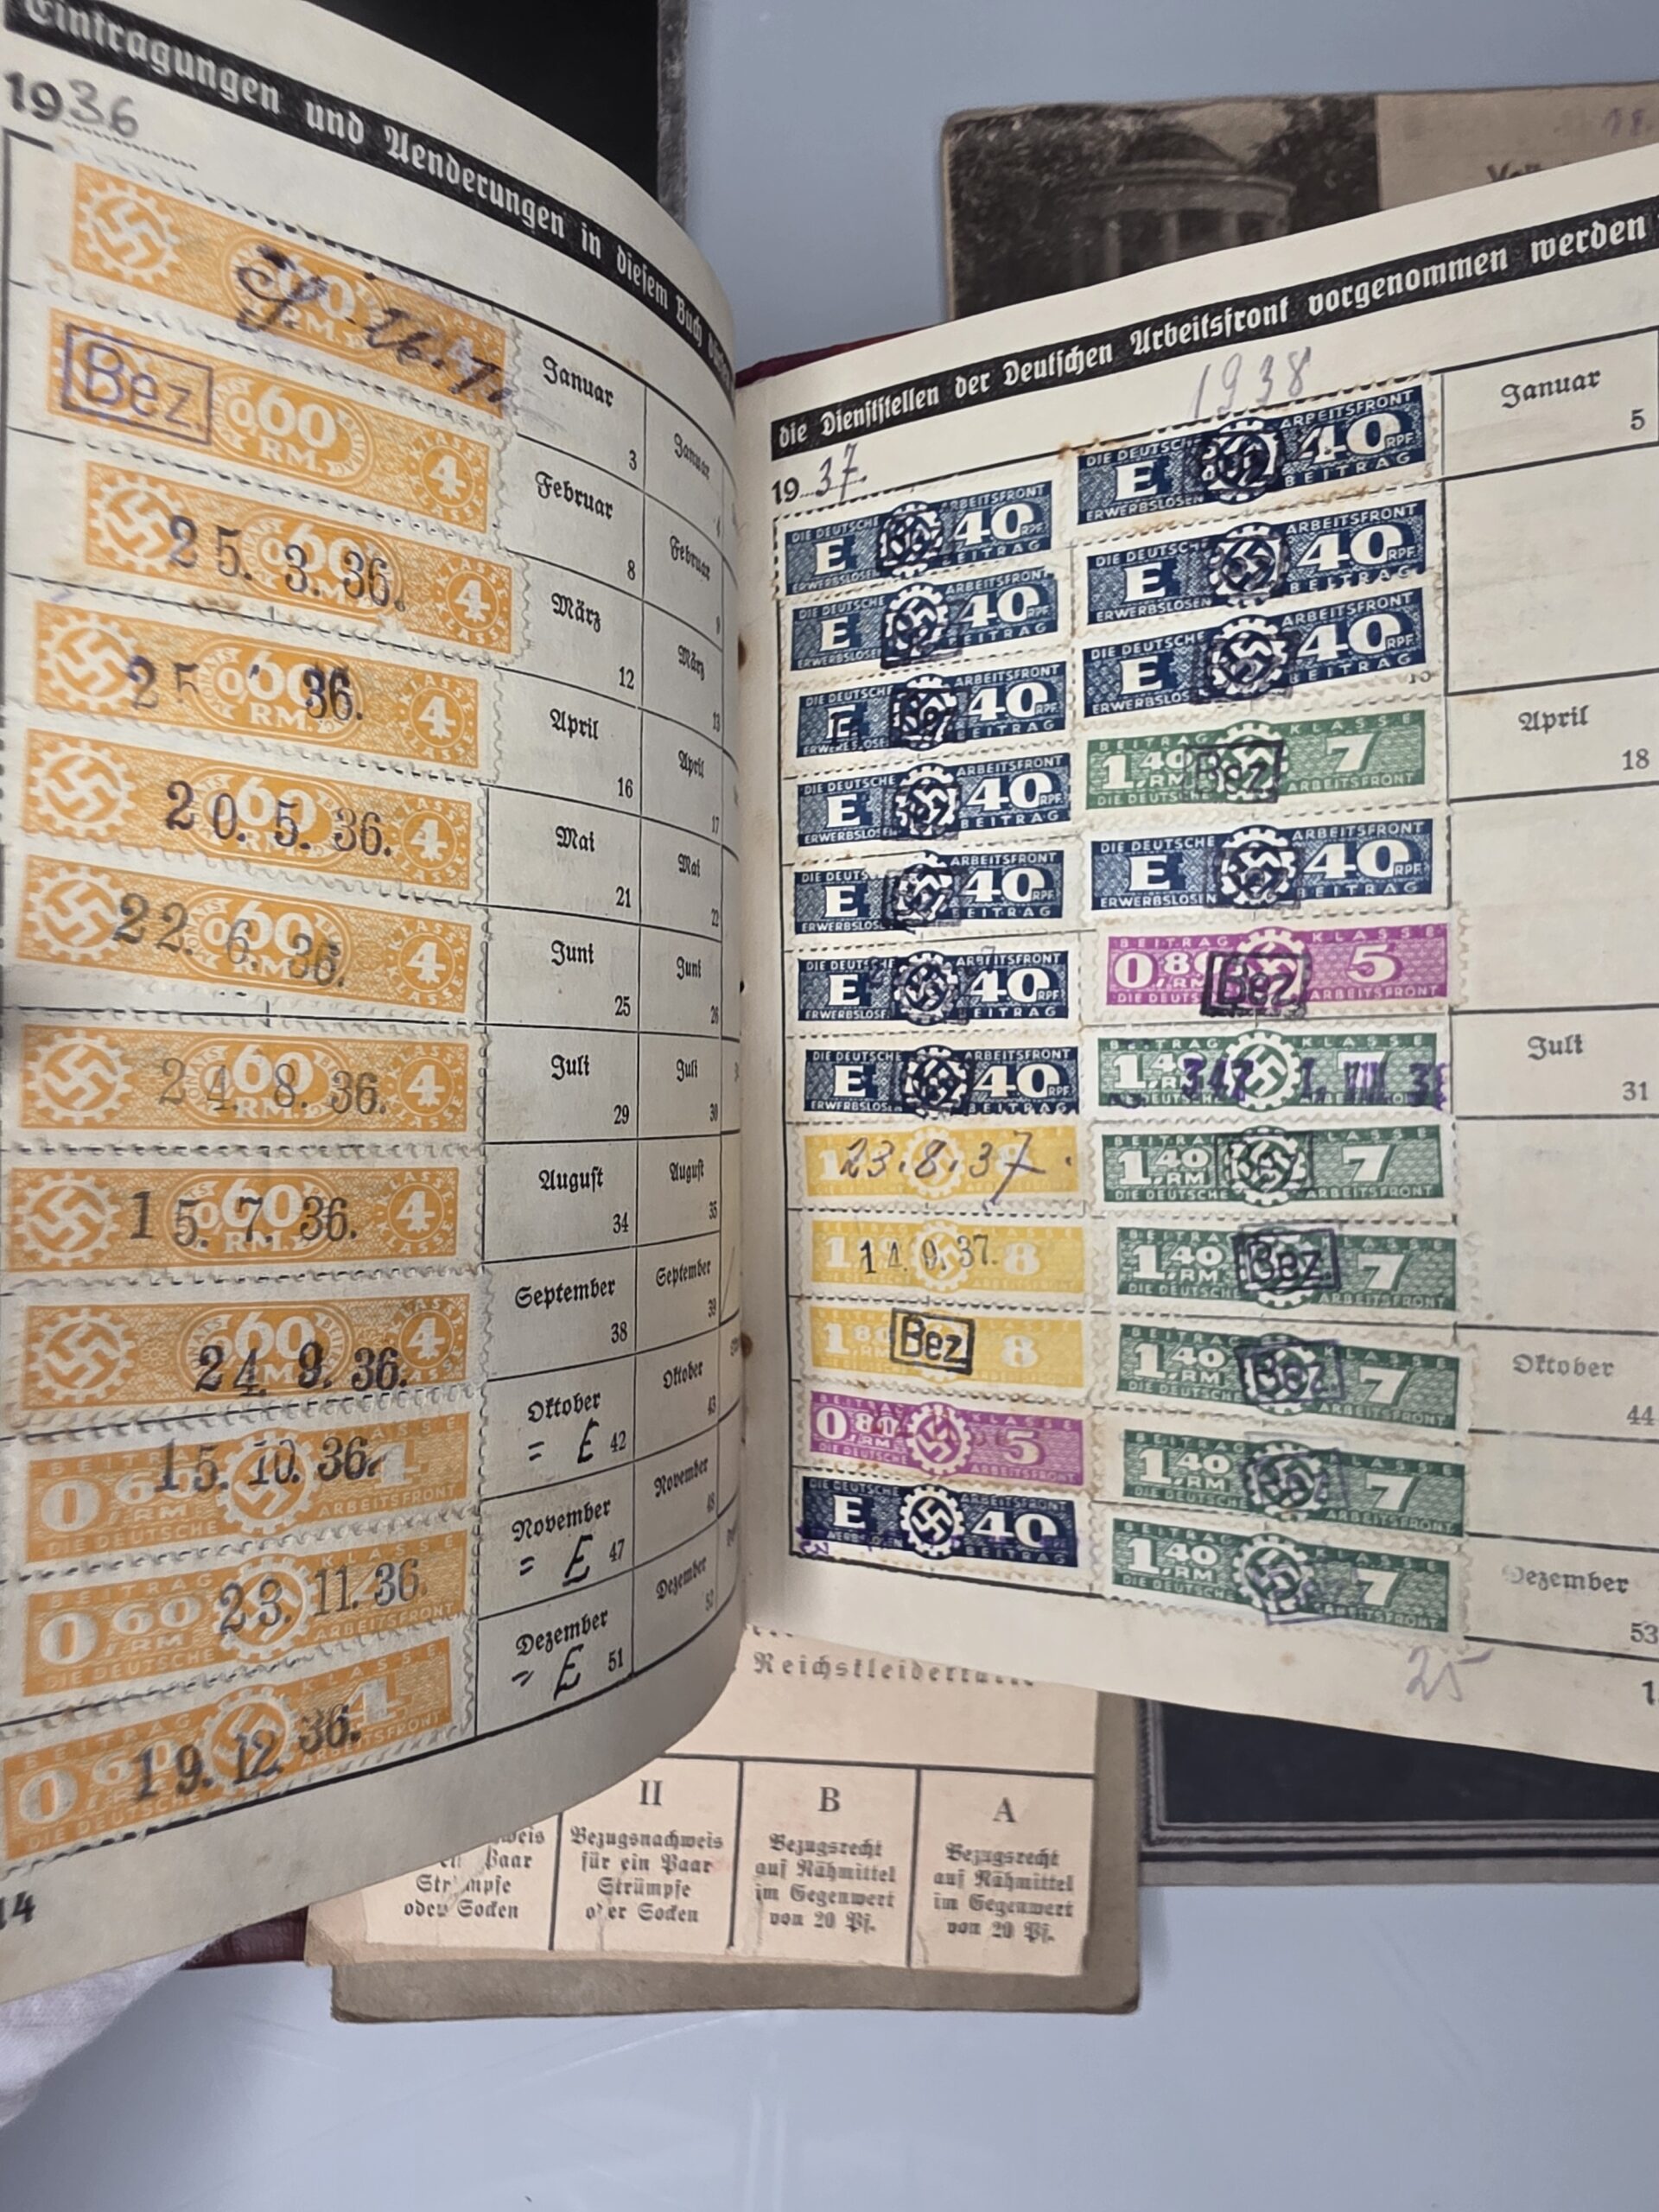 Eintragungen und Aenderungen in diesem Buch
1936
Januar
3
Bez.
60
RM.
4
Februar
8
25. 3. 36.
060
4
KLASSE
März
12
25 36.
060
RM.
4
KLASSE
April
16
20. 5. 36.
60
4
KLASSE
Mai
21
22. 6. 36.
60
RM.
4
KLASSE
Juni
25
24. 8. 36.
60
4
KLASSE
Juli
29
15. 7. 36.
60
RM.
4
KLASSE
August
34
24. 9. 36.
60
RM.
4
KLASSE
September
38
15. 10. 36.
BEITRAG KLASSE
0 60 4
DIE DEUTSCHE ARBEITSFRONT
Oktober
= E 42
23. 11. 36.
BEITRAG KLASSE
0,60
RM
DIE DEUTSCHE ARBEITSFRONT
November
= E 47
19. 12. 36.
BEITRAG KLASSE
0,60 4
DIE DEUTSCHE ARBEITSFRONT
Dezember
= E 51
Januar
Februar
März
13
April
17
Mai
22
Juni
26
Juli
30
August
35
September
39
Oktober
43
November
48
Dezember
52
14
die Dienststellen der Deutschen Arbeitsfront vorgenommen werden
1937.
DIE DEUTSCHE ARBEITSFRONT
E 40 RPF.
ERWERBSLOSEN BEITRAG
DIE DEUTSCHE ARBEITSFRONT
E 40 RPF.
ERWERBSLOSEN BEITRAG
DIE DEUTSCHE ARBEITSFRONT
E 40 RPF.
BEITRAG
DIE DEUTSCHE ARBEITSFRONT
E 40 RPF.
ERWERBSLOSEN BEITRAG
ARBEITSFRONT
E 40 RPF.
BEITRAG
DIE DEUTSCHE ARBEITSFRONT
E 40 RPF.
ERWERBSLOSEN BEITRAG
DIE DEUTSCHE ARBEITSFRONT
E 40 RPF.
ERWERBSLOSEN BEITRAG
23.8.37.
14. 9. 37.
8
1 80 Bez 8
BEITRAG KLASSE
0,80 5
RM
DIE DEUTSCHE ARBEITSFRONT
DIE DEUTSCHE ARBEITSFRONT
E 40
BEITRAG
1938
DIE DEUTSCHE ARBEITSFRONT
E 40 RPF.
ERWERBSLOSEN BEITRAG
DIE DEUTSCHE ARBEITSFRONT
E 40 RPF.
ERWERBSLOSEN BEITRAG
DIE DEUTSCHE ARBEITSFRONT
E 40 RPF.
ERWERBSLOSEN BEITRAG
BEITRAG KLASSE
1,40 RM Bez 7
DIE DEUTSCHE ARBEITSFRONT
DIE DEUTSCHE ARBEITSFRONT
E 40 RPF.
ERWERBSLOSEN BEITRAG
BEITRAG KLASSE
0,80 RM Bez 5
DIE DEUTSCHE ARBEITSFRONT
BEITRAG KLASSE
1,40 RM 7
BEITRAG KLASSE
1,40 RM 7
DIE DEUTSCHE ARBEITSFRONT
BEITRAG KLASSE
1,40 RM Bez 7
DIE DEUTSCHE ARBEITSFRONT
BEITRAG KLASSE
1,40 RM Bez 7
DIE DEUTSCHE ARBEITSFRONT
BEITRAG KLASSE
1,40 RM 7
DIE DEUTSCHE ARBEITSFRONT
BEITRAG KLASSE
1,40 RM 7
DIE DEUTSCHE ARBEITSFRONT
25
Januar
5
April
18
Juli
31
Oktober
44
Dezember
53
II
Bezugsnachweis
für ein Paar
Strümpfe
oder Socken
Paar
Strümpfe
oder Socken
B
Bezugsrecht
auf Nähmittel
im Gegenwert
von 20 Pf.
A
Bezugsrecht
auf Nähmittel
im Gegenwert
von 20 Pf.